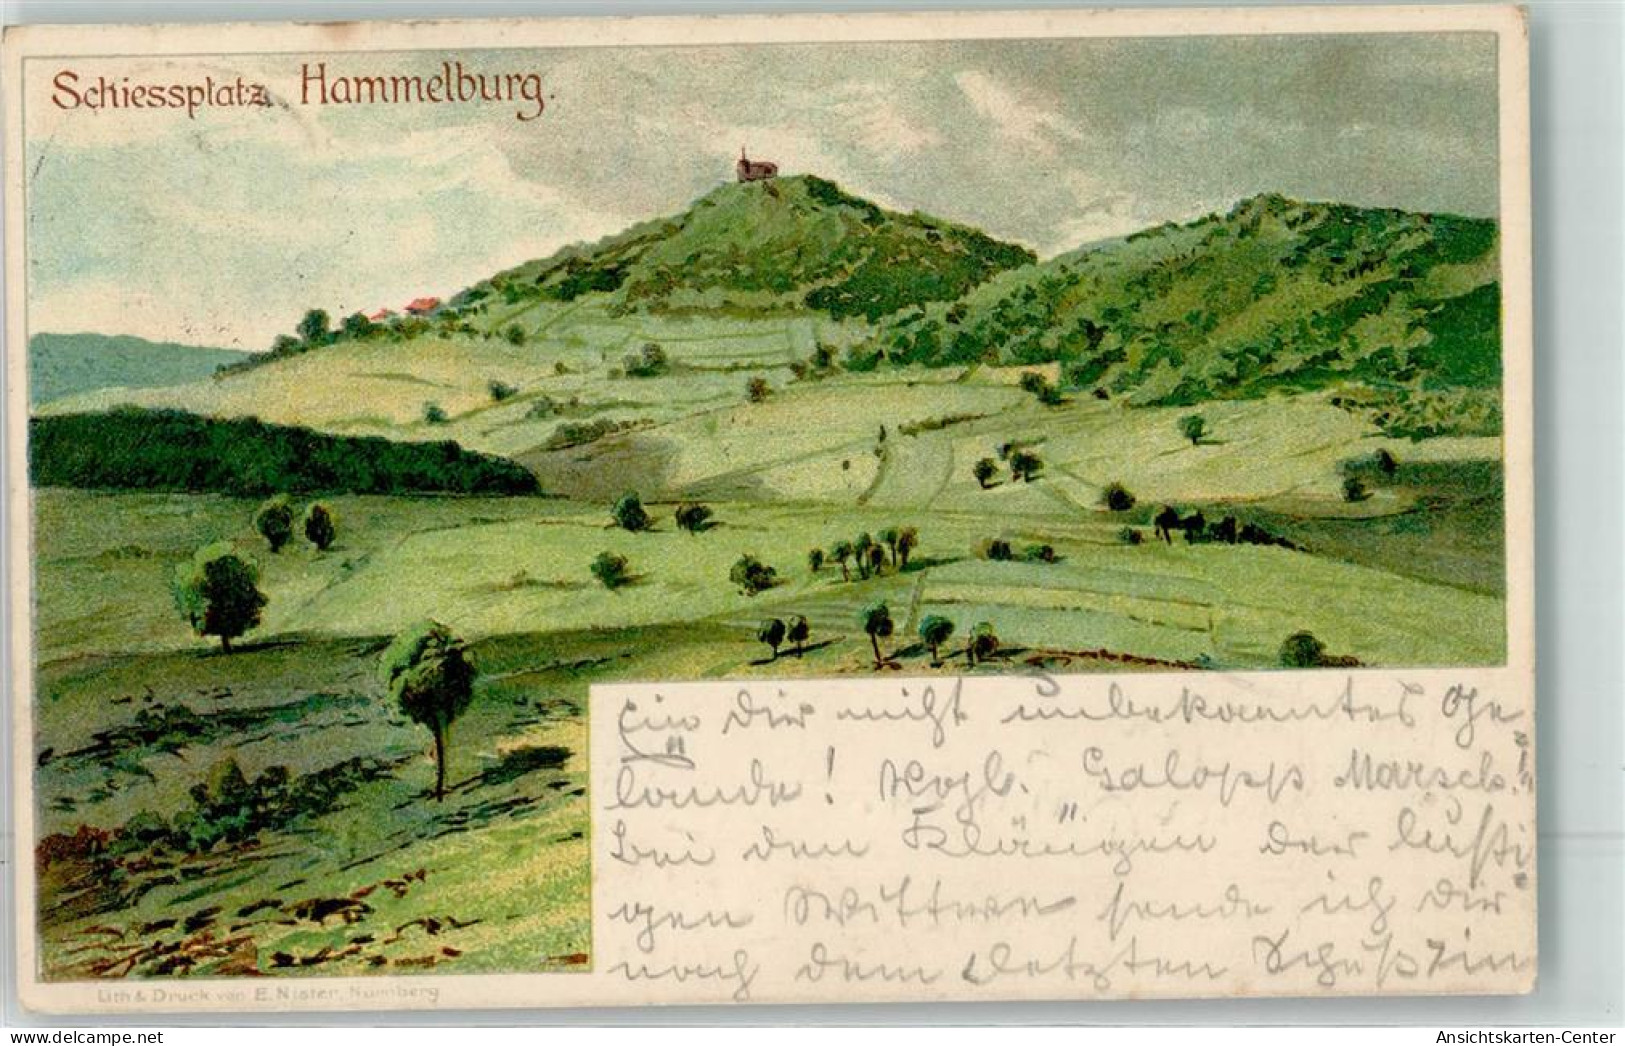 Schiessplatz Hammelburg.
Ein Dir nicht unbekanntes Ge"
lände! Vogl. Galopp Marsch!"
Bei den Klängen der lusti"
gen Wittwe sende ich Dir
nach dem letzten Schuß
Lith & Druck von E. Nister, Nürnberg
Ansichtskarten-Center